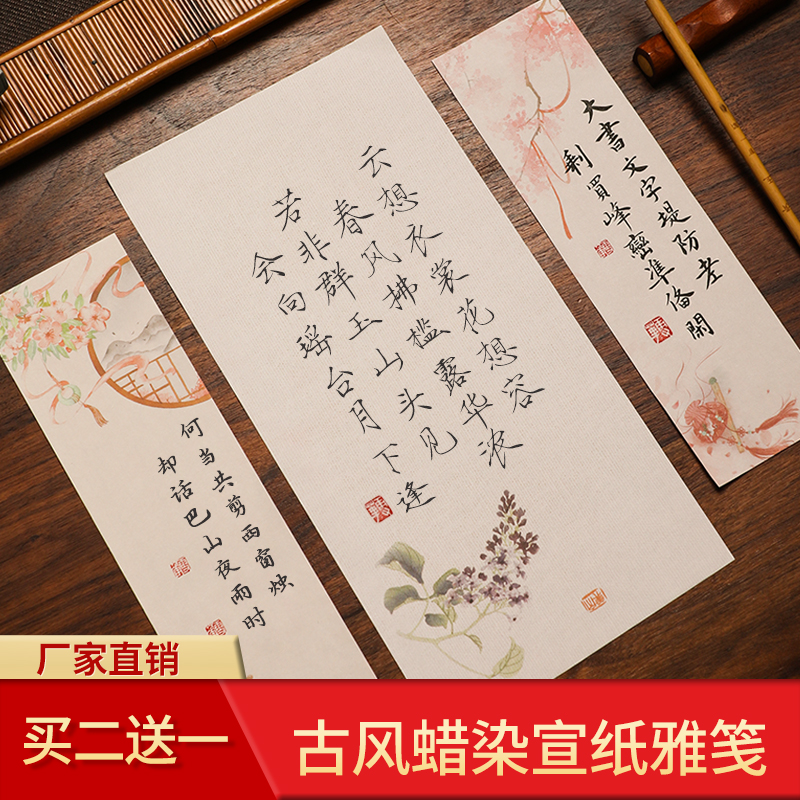 云想衣裳花想容
春风拂槛露华浓
若非群玉山头见
会向瑶台月下逢
大書文字堤防老
剩買峰巒準備閑
何当共剪西窗烛
却话巴山夜雨时
厂家直销
买二送一
古风蜡染宣纸雅笺